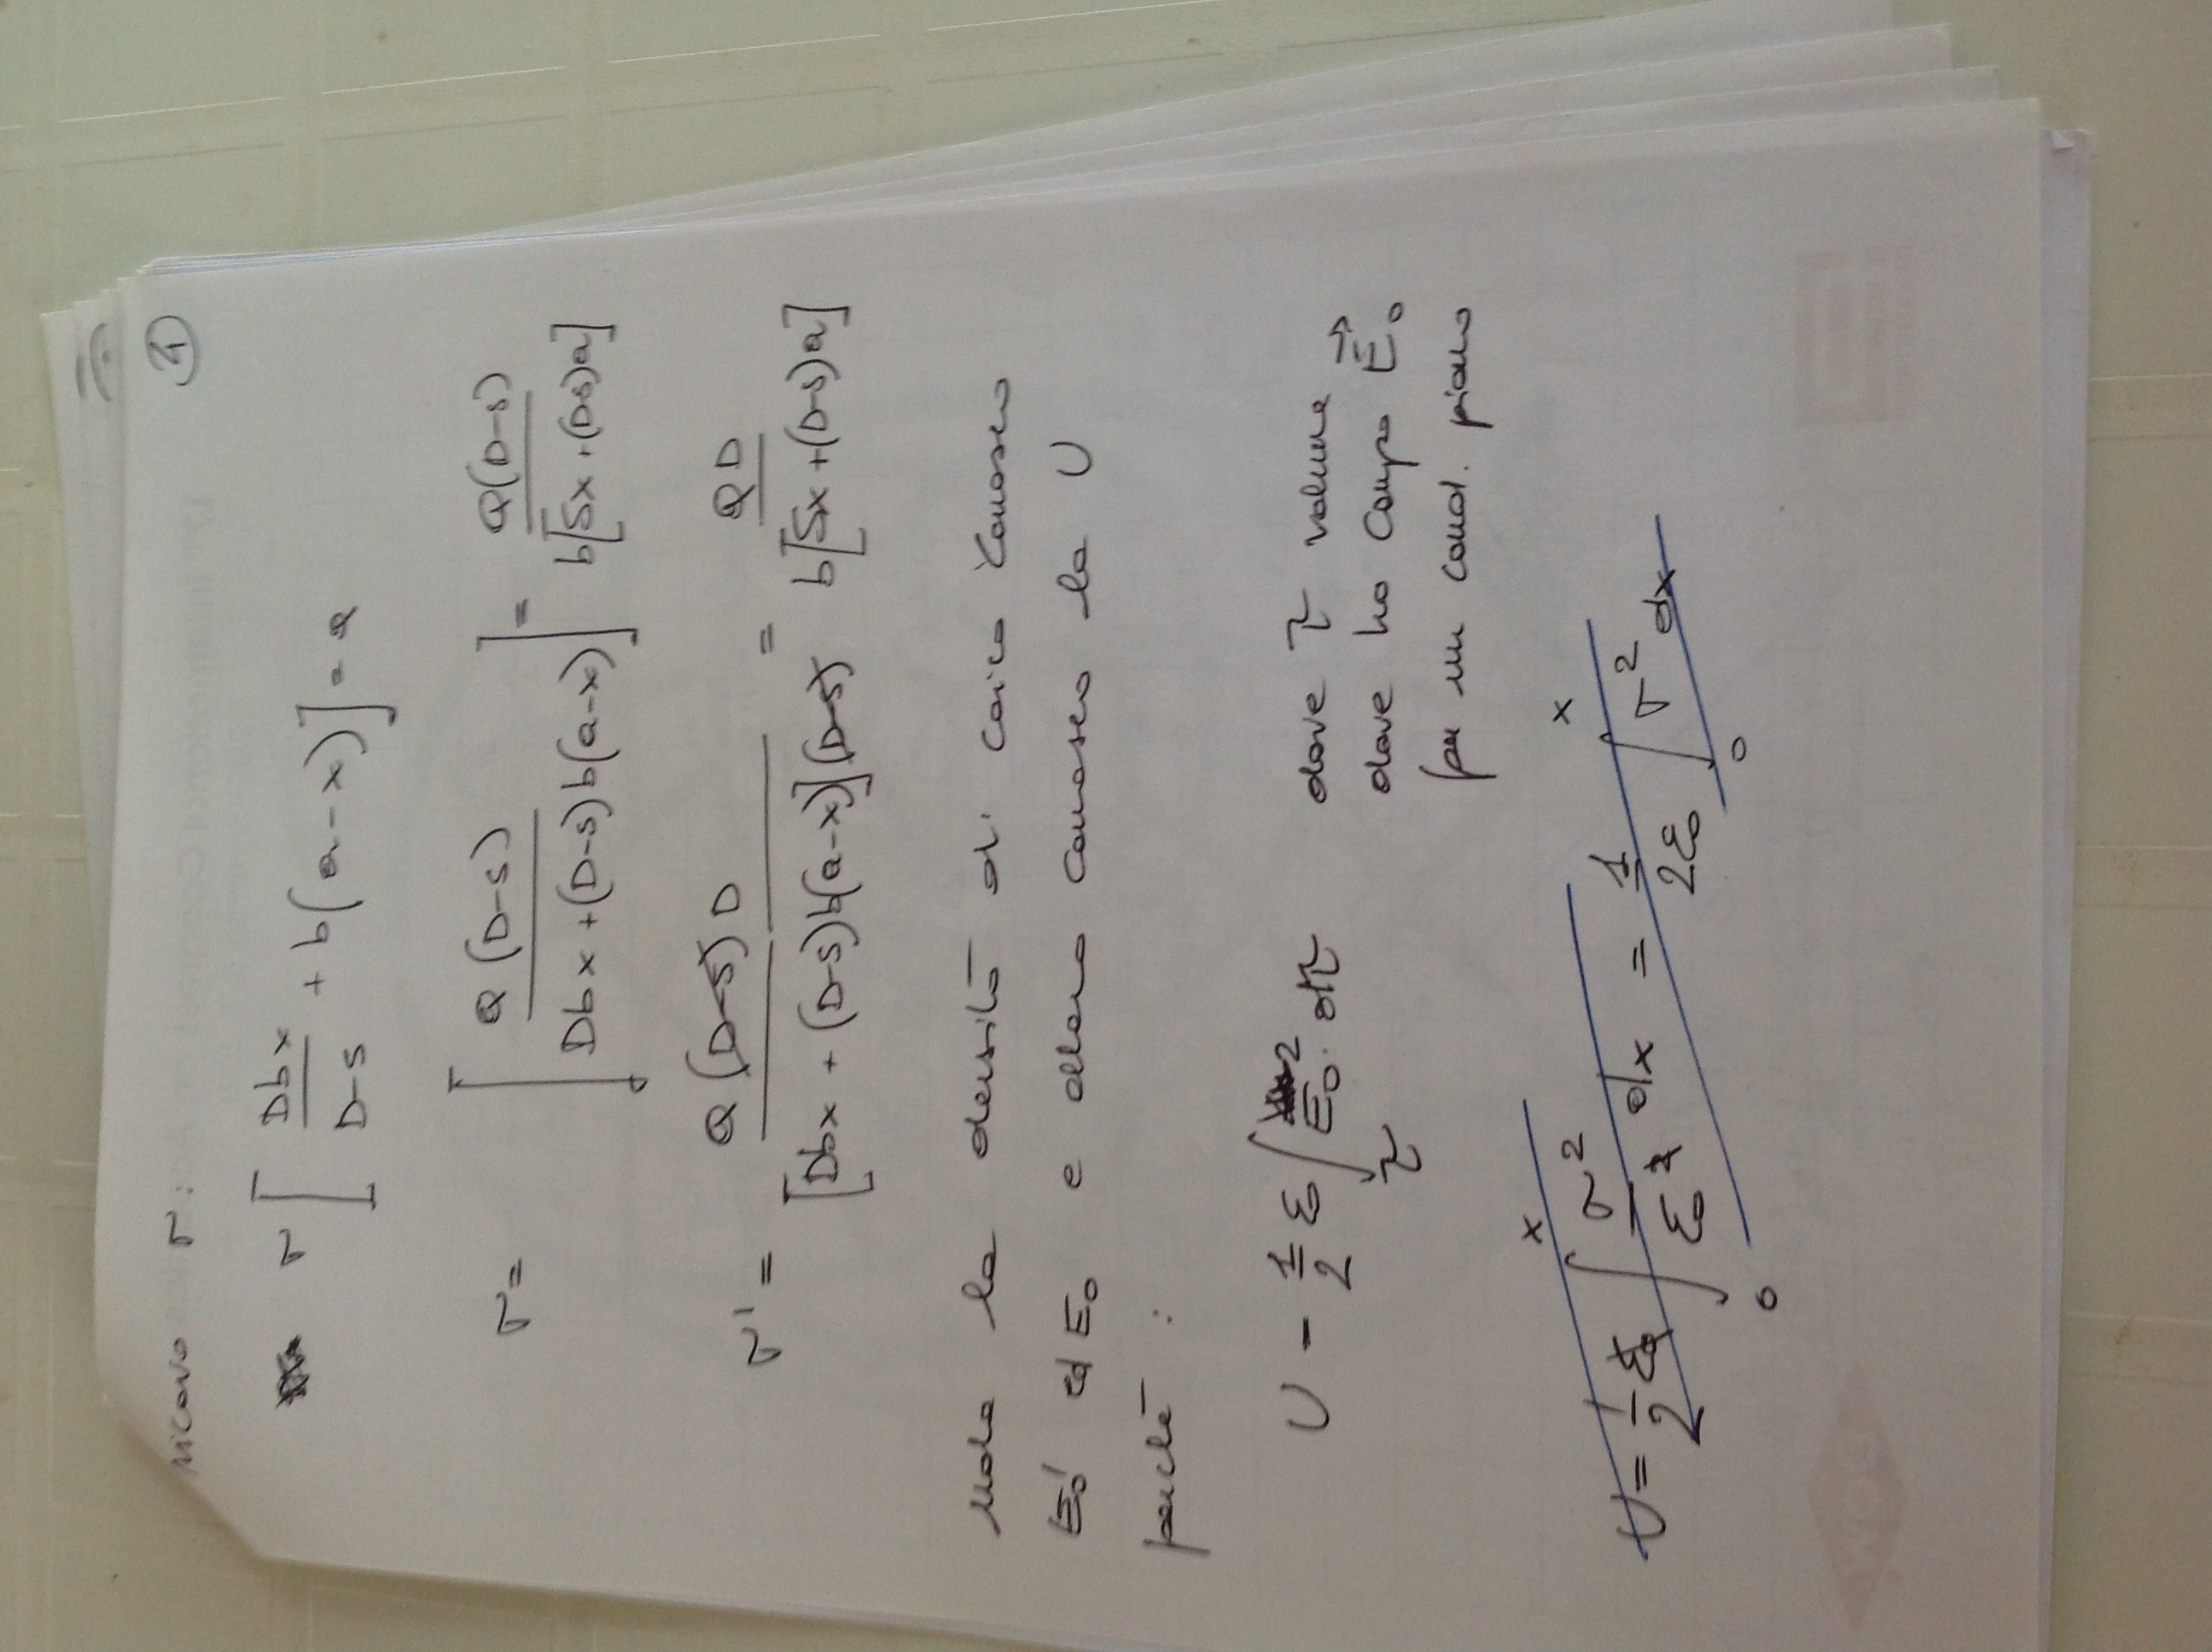 ricavo σ: ④
σ [ Dbx/(D-s) + b(a-x) ] = Q
σ = [ Q(D-s) / (Dbx + (D-s)b(a-x)) ] = Q(D-s) / b[sx + (D-s)a]
σ' = Q(D-s)D / [Dbx + (D-s)b(a-x)](D-s) = QD / b[sx + (D-s)a]
Nota la densità di carica conosco
E₀' ed E₀ e allora conosco la U
perché :
U = 1/2 ε₀ ∫_τ E₀² dτ dove τ volume
dove ho campo E⃗₀
per un cond. piano
U = 1/2 ε₀ ∫₀ˣ σ²/ε₀² dx = 1/2ε₀ ∫₀ˣ σ² dx